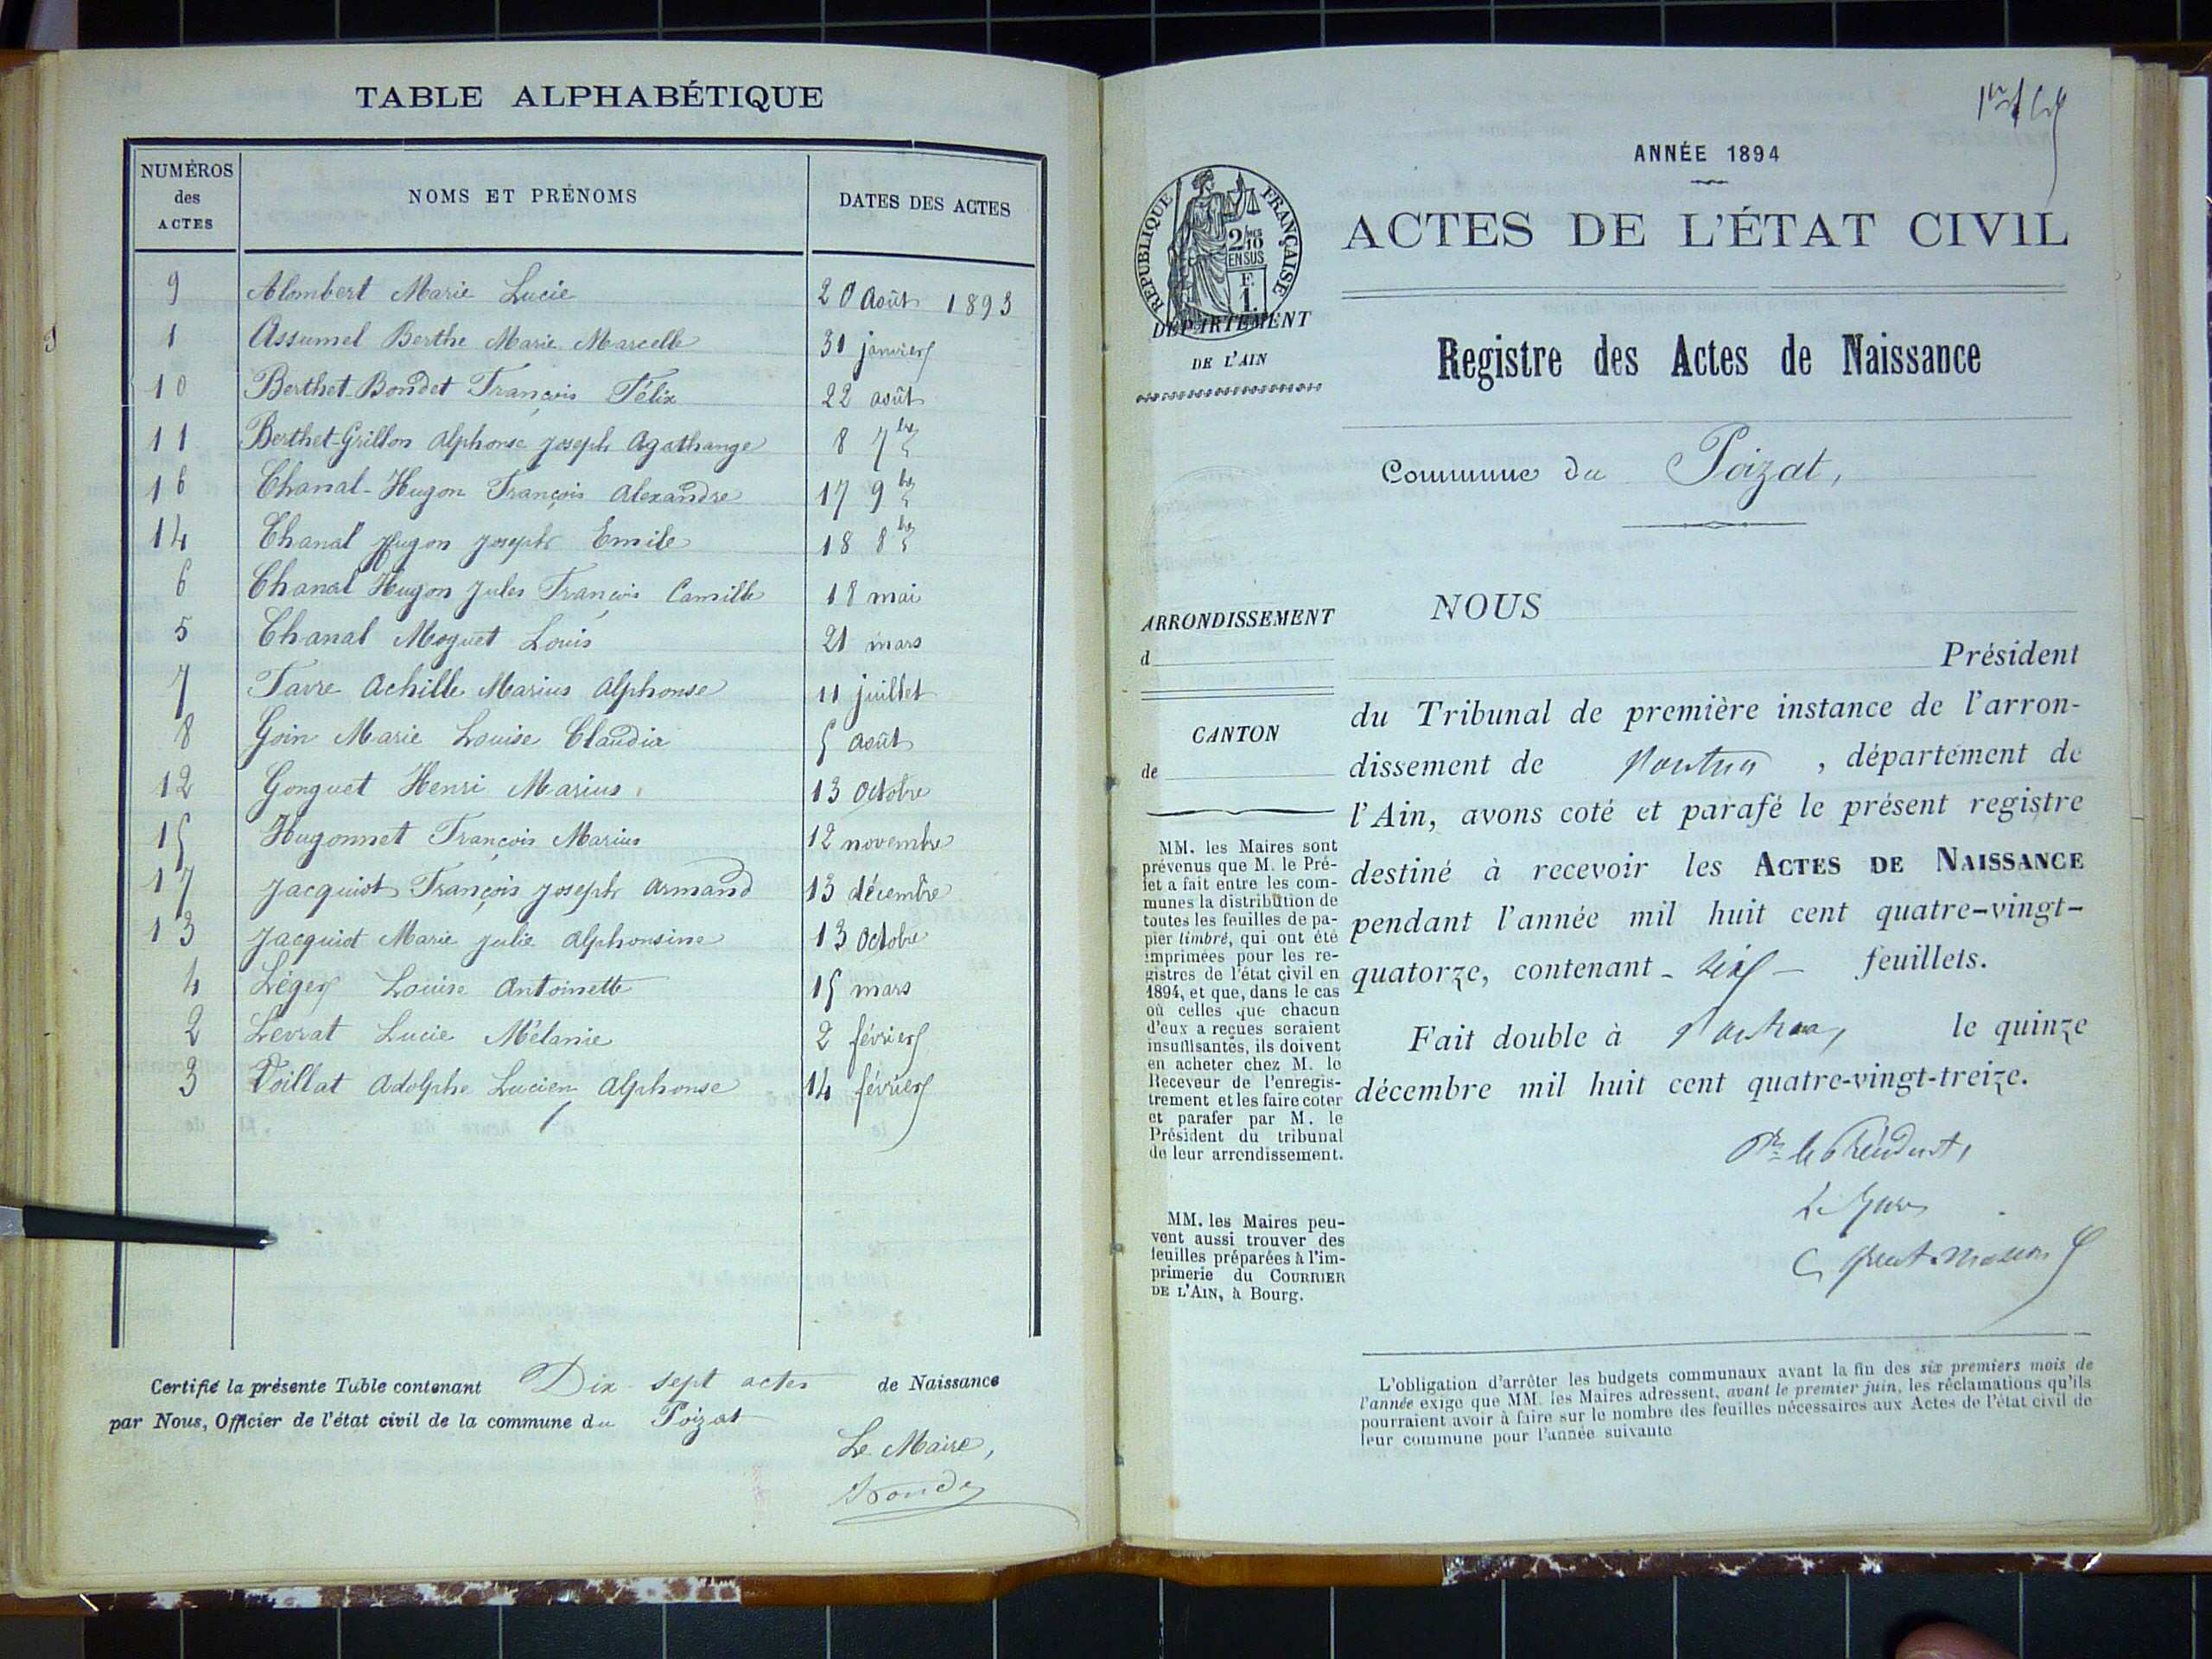 TABLE ALPHABÉTIQUE
NUMÉROS des ACTES NOMS ET PRÉNOMS DATES DES ACTES
9 Alombert Marie Lucie 20 Août 1893
1 Assumel Berthe Marie Marcelle 31 janvier
10 Berthet-Bondet François Félix 22 août
11 Berthet-Grillon Alphonse Joseph Agathange 8 7bre
16 Chanal-Hugon François Alexandre 17 9bre
14 Chanal Hugon Joseph Emile 18 8bre
6 Chanal Hugon Jules François Camille 18 mai
5 Chanal Moguet Louis 21 mars
7 Favre Achille Marius Alphonse 11 juillet
8 Goin Marie Louise Claudia 5 août
12 Gonguet Henri Marius 13 Octobre
15 Hugonnet François Marius 12 novembre
17 Jacquiot François Joseph Armand 13 décembre
13 Jacquiot Marie Julie Alphonsine 13 Octobre
4 Léger Louise Antoinette 15 mars
2 Levrat Lucie Mélanie 2 février
3 Voillat Adolphe Lucien Alphonse 14 février
Certifié la présente Table contenant Dix-sept actes de Naissance
par Nous, Officier de l'état civil de la commune du Poizat
Le Maire,
ANNÉE 1894
ACTES DE L'ÉTAT CIVIL
RÉPUBLIQUE FRANÇAISE
2/10 EN SUS
F. 1.
DÉPARTEMENT
DE L'AIN
Registre des Actes de Naissance
Commune du Poizat,
ARRONDISSEMENT
d
CANTON
de
MM. les Maires sont
prévenus que M. le Pré-
fet a fait entre les com-
munes la distribution de
toutes les feuilles de pa-
pier timbré, qui ont été
imprimées pour les re-
gistres de l'état civil en
1894, et que, dans le cas
où celles que chacun
d'eux a reçues seraient
insuffisantes, ils doivent
en acheter chez M. le
Receveur de l'enregis-
trement et les faire coter
et parafer par M. le
Président du tribunal
de leur arrondissement.
MM. les Maires peu-
vent aussi trouver des
feuilles préparées à l'im-
primerie du COURRIER
DE L'AIN, à Bourg.
NOUS
Président
du Tribunal de première instance de l'arron-
dissement de Nantua, département de
l'Ain, avons coté et parafé le présent registre
destiné à recevoir les ACTES DE NAISSANCE
pendant l'année mil huit cent quatre-vingt-
quatorze, contenant - six - feuillets.
Fait double à Nantua, le quinze
décembre mil huit cent quatre-vingt-treize.
Pr le Président,
Le Juge
L'obligation d'arrêter les budgets communaux avant la fin des six premiers mois de
l'année exige que MM. les Maires adressent, avant le premier juin, les réclamations qu'ils
pourraient avoir à faire sur le nombre des feuilles nécessaires aux Actes de l'état civil de
leur commune pour l'année suivante